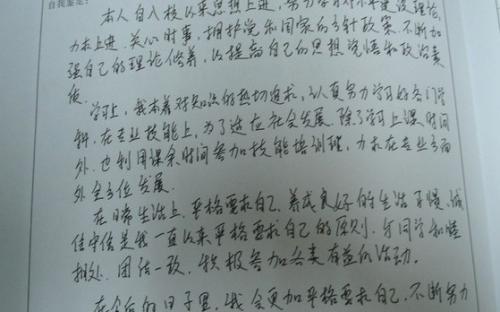 自我鉴定:
本人自入校以来思想上进，努力学习邓小平建设理论，
力求上进，关心时事，拥护党和国家的方针政策，不断加
强自己的理论修养，以提高自己的思想觉悟和政治素
质。
学习上，我本着对知识的热切追求，认真努力学习好各门学
科，在专业技能上，为了适应社会发展，除了学习上课时间
外，也利用课余时间参加技能培训班，力求在专业方面
外全方位发展。
在日常生活上，严格要求自己，养成良好的生活习惯，诚
信守信是我一直以来严格要求自己的原则，与同学和睦
相处，团结一致，积极参加各类有益的活动。
在今后的日子里，我会更加严格要求自己，不断努力